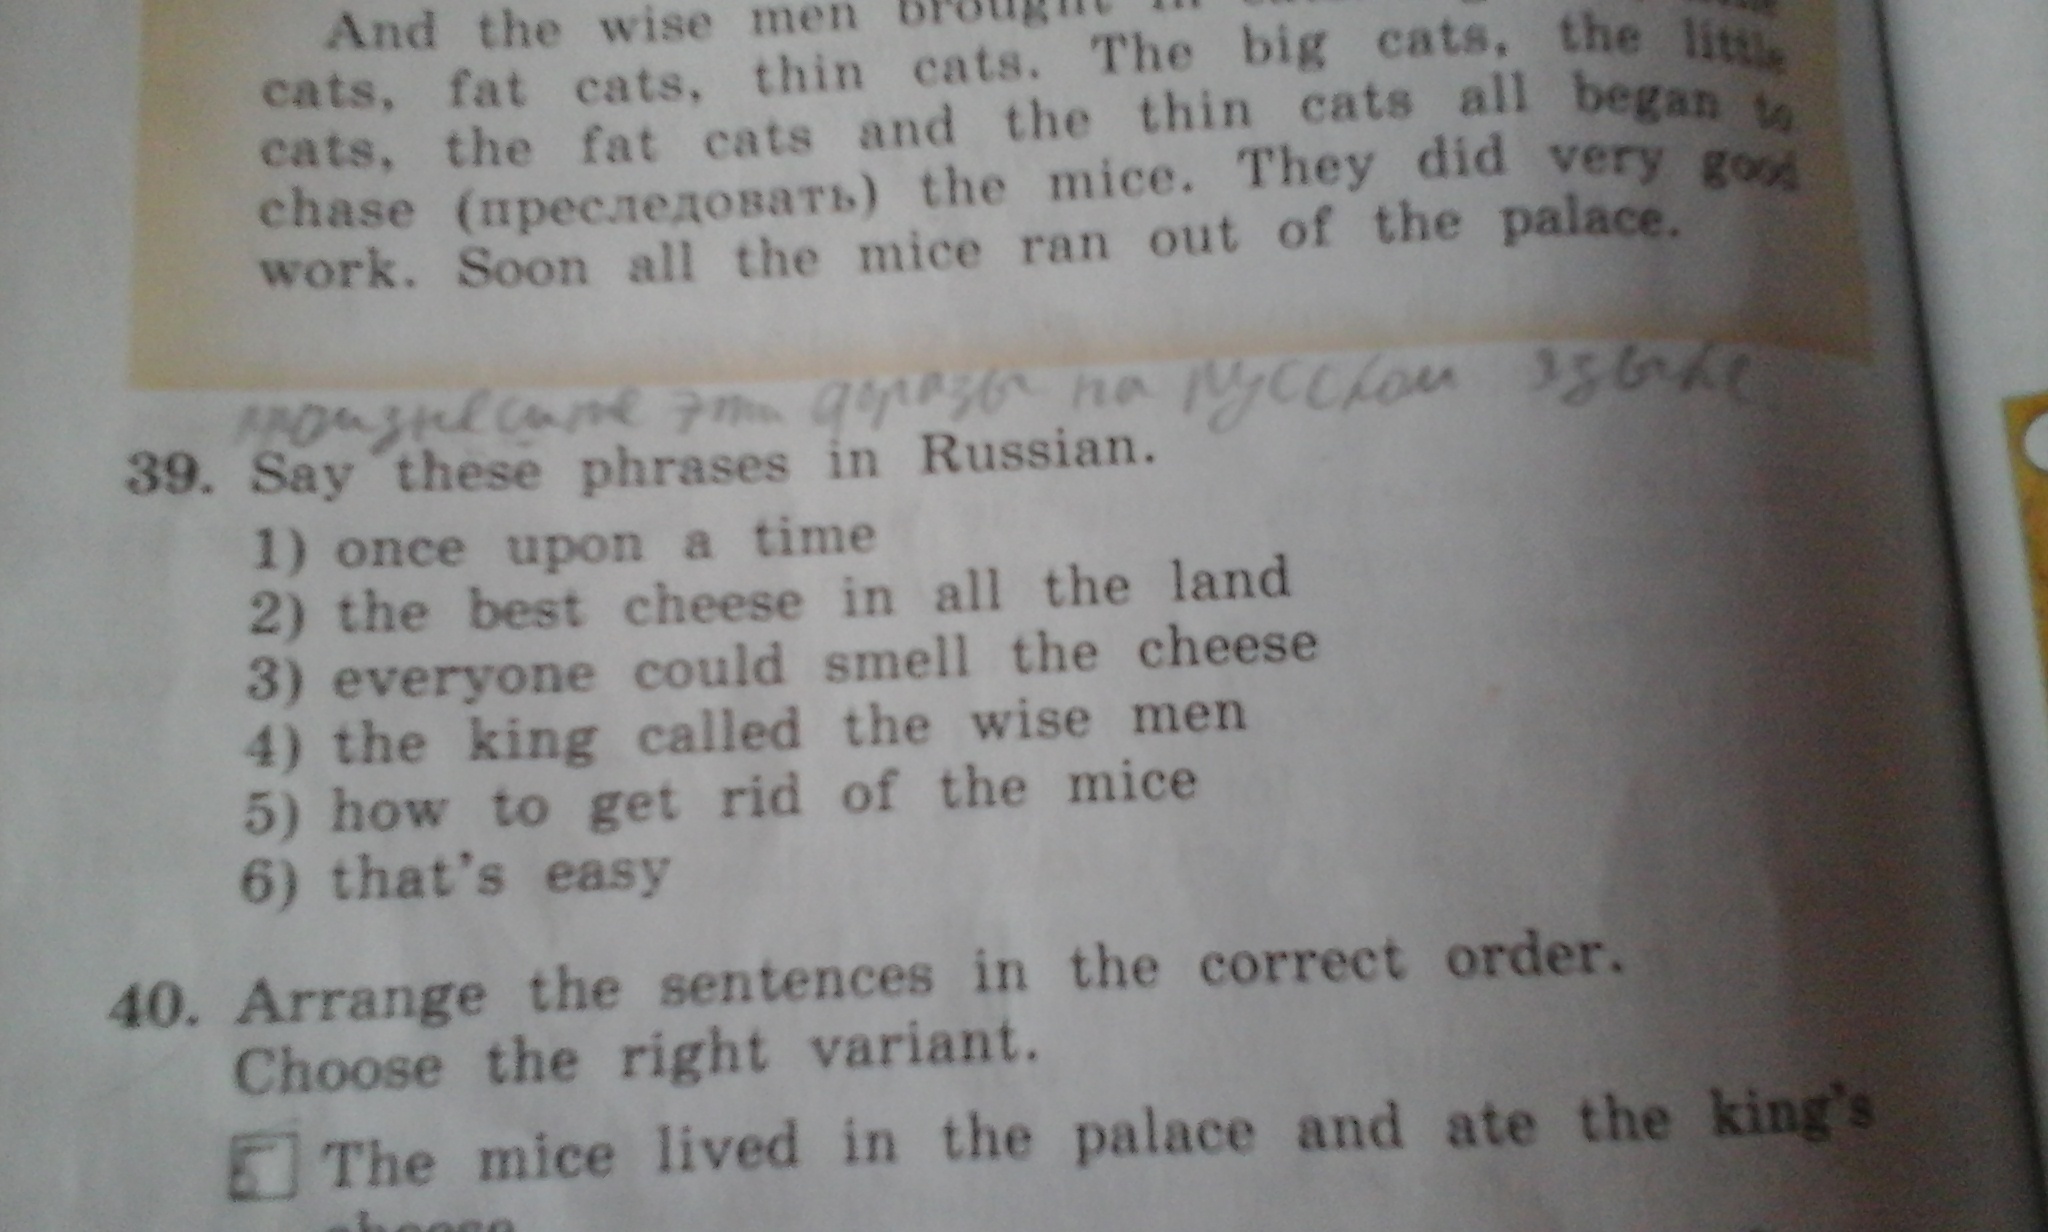 And the wise men brought in
cats, fat cats, thin cats. The big cats, the little
cats, the fat cats and the thin cats all began to
chase (преследовать) the mice. They did very good
work. Soon all the mice ran out of the palace.
эти фразы на русском языке
39. Say these phrases in Russian.
1) once upon a time
2) the best cheese in all the land
3) everyone could smell the cheese
4) the king called the wise men
5) how to get rid of the mice
6) that's easy
40. Arrange the sentences in the correct order.
Choose the right variant.
The mice lived in the palace and ate the king's
cheese